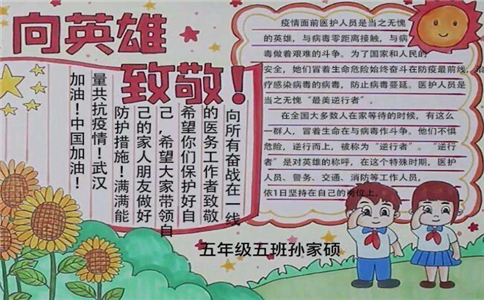 向英雄
致敬！
向所有奋战在一线
的医务工作者致敬
希望你们保护好自
己,希望大家带领自
己的家人朋友做好
防护措施！满满能
量共抗疫情！武汉
加油！中国加油！
疫情面前医护人员是当之无愧
的英雄，与病毒零距离接触，与病
毒做着艰难的斗争。为了国家和人民的
安全，她们冒着生命危险始终奋斗在防疫最前线，
疗感染病毒的病患，防止病毒蔓延。医护人员是
当之无愧“最美逆行者”。
在全国大多数人在家等待的时候，有这么
一群人，冒着生命在与病毒作斗争。他们不惧
危险，逆行而上，被称为“逆行者”。“逆行
者”是对英雄的称呼，在这个特殊时期，医护
人员、警务、交通、消防等工作人员，
依1日坚持在自己的岗位上。
五年级五班孙家硕